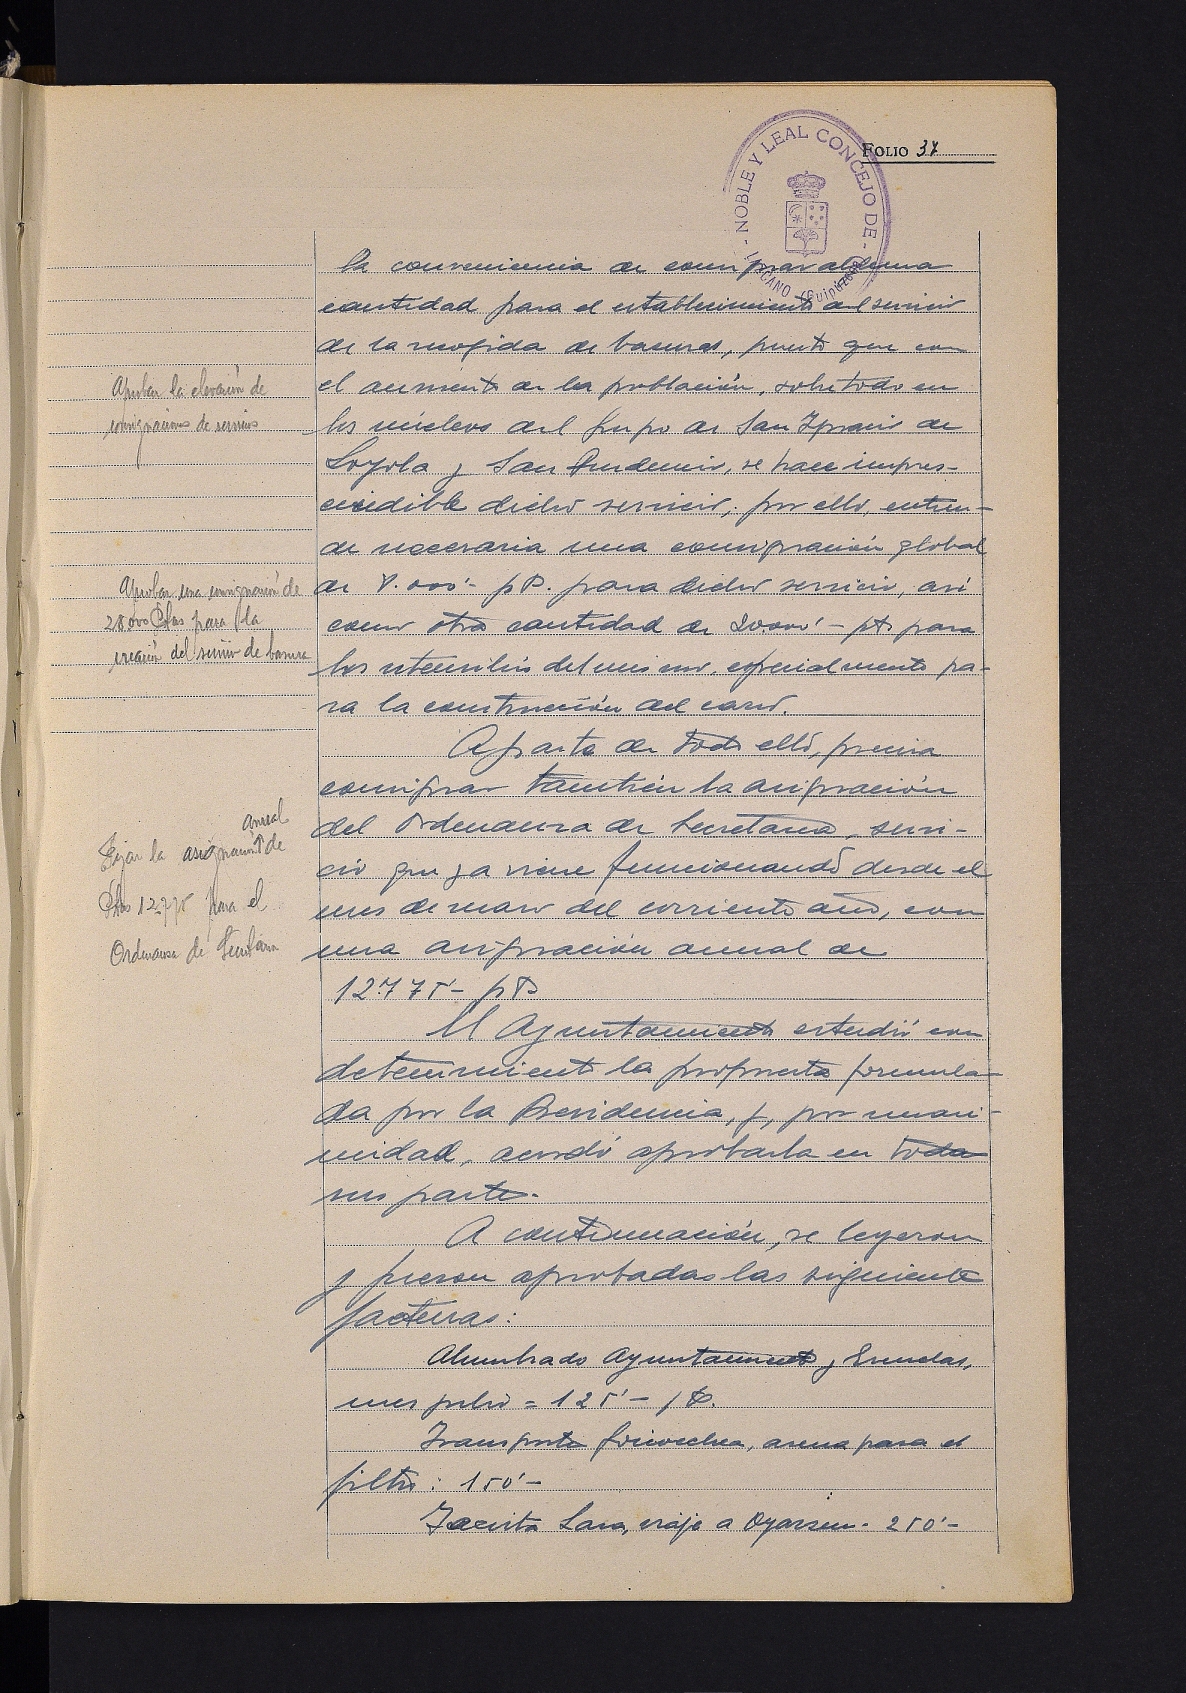 FOLIO 37
- NOBLE Y LEAL CONCEJO DE - LAZCANO (Guipúzcoa)
la conveniencia de consignar alguna
cantidad para el establecimiento del servicio
de la recogida de basuras, puesto que con
el aumento de la población, sobre todo en
los núcleos del Grupo de San Ignacio de
Loyola y San Prudencio, se hace impres-
cindible dicho servicio; por ello, entien-
de necesaria una consignación global
de 8.000'- pts. para dicho servicio, así
como otra cantidad de 20.000'- pts para
los utensilios del mismo, especialmente pa-
ra la construcción del carro.
Aparte de todo ello, precisa
consignar también la asignación
del Ordenanza de Secretaría, servi-
cio que ya viene funcionando desde el
mes de marzo del corriente año, con
una asignación anual de
12.775- pts
El Ayuntamiento estudió con
detenimiento la propuesta formula-
da por la Presidencia, y, por unani-
midad, acordó aprobarla en todas
sus partes.
A continuación, se leyeron
y fueron aprobadas las siguientes
facturas:
Alumbrado Ayuntamiento y Escuelas,
mes julio = 125'- pts.
Transportes Goicoechea, arena para el
filtro: 150'-
Jacinto Lasa, viaje a Oyarzun - 250'-
Aprobar la elevación de
consignaciones de servicios
Aprobar una consignación de
28.000 Ptas para la
creación del servicio de basura
Fijar la asignación anual de
Ptas 12.775 para el
Ordenanza de Secretaría